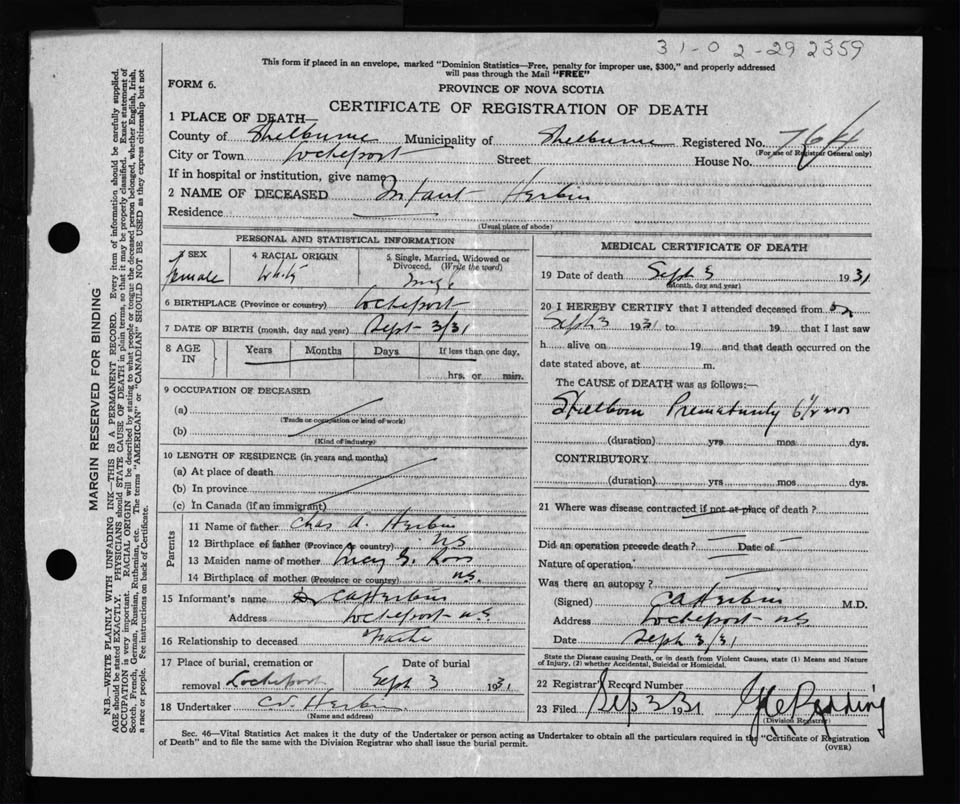 31-02-29 2359
This form if placed in an envelope, marked "Dominion Statistics—Free, penalty for improper use, $300," and properly addressed
will pass through the Mail "FREE"
FORM 6.
PROVINCE OF NOVA SCOTIA
CERTIFICATE OF REGISTRATION OF DEATH
1 PLACE OF DEATH—
County of Shelburne Municipality of Shelburne Registered No. 7644
(For use of Registrar General only)
City or Town Lockeport Street House No.
If in hospital or institution, give name
2 NAME OF DECEASED Infant Herbin
Residence
(Usual place of abode)
PERSONAL AND STATISTICAL INFORMATION
3 SEX 4 RACIAL ORIGIN 5 Single, Married, Widowed or
Divorced, (Write the word)
female White Single
6 BIRTHPLACE (Province or country) Lockeport
7 DATE OF BIRTH (month, day and year) Sept- 3/31
8 AGE IN Years Months Days If less than one day,
hrs. or min.
9 OCCUPATION OF DECEASED
(a)
(Trade or occupation or kind of work)
(b)
(Kind of industry)
10 LENGTH OF RESIDENCE (in years and months)
(a) At place of death
(b) In province
(c) In Canada (if an immigrant)
Parents
11 Name of father Chas A. Herbin
12 Birthplace of father (Province or country) NS
13 Maiden name of mother Lucy G.
14 Birthplace of mother (Province or country) N.S.
15 Informant's name Dr CA Herbin
Address Lockeport N.S.
16 Relationship to deceased
17 Place of burial, cremation or Date of burial
removal Lockeport Sept 3 1931
18 Undertaker Herbin
(Name and address)
MEDICAL CERTIFICATE OF DEATH
19 Date of death Sept 3 1931
(Month, day and year)
20 I HEREBY CERTIFY that I attended deceased from
Sept 3 1931 to 19 that I last saw
h alive on 19 and that death occurred on the
date stated above, at m.
The CAUSE of DEATH was as follows:—
Stillborn Prematurity 6½ mos
(duration) yrs mos dys.
CONTRIBUTORY
(duration) yrs mos dys.
21 Where was disease contracted if not at place of death?
Did an operation precede death? Date of
Nature of operation
Was there an autopsy?
(Signed) CA Herbin M.D.
Address Lockeport NS
Date Sept 3/31
State the Disease causing Death, or in death from Violent Causes, state (1) Means and Nature
of Injury, (2) whether Accidental, Suicidal or Homicidal.
22 Registrar's Record Number
23 Filed Sep 3 1931 Redding
(Division Registrar)
Sec. 46—Vital Statistics Act makes it the duty of the Undertaker or person acting as Undertaker to obtain all the particulars required in the "Certificate of Registration
of Death" and to file the same with the Division Registrar who shall issue the burial permit.
(OVER)
MARGIN RESERVED FOR BINDING
N.B.—WRITE PLAINLY WITH UNFADING INK—THIS IS A PERMANENT RECORD. Every item of information should be carefully supplied.
AGE should be stated EXACTLY. PHYSICIANS should STATE CAUSE OF DEATH in plain terms, so that it may be properly classified. Exact statement of
OCCUPATION is very important. RACIAL ORIGIN will be described by stating to what people or tongue the deceased person belonged, whether English, Irish,
Scotch, French, German, Russian, Ruthenian, etc. The terms "AMERICAN" or "CANADIAN" SHOULD NOT BE USED as they express citizenship but not
a race or people. See instructions on back of Certificate.